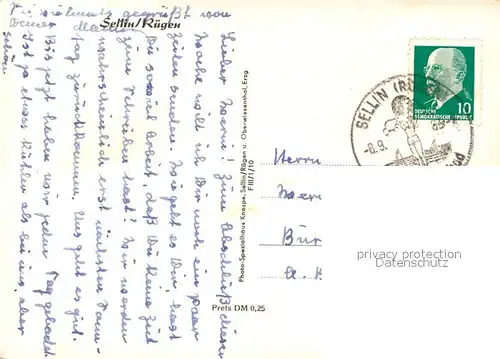 Sei vielmals gegrüßt von
Deiner Mama
Sellin/Rügen
Lieber Wern! Zum Abschluß dieser
Woche will ich Dir noch ein paar
Zeilen senden. Wie geht es Dir, hast
Du soviel Arbeit, daß Du keine Zeit
zum Schreiben hast? Wir werden
wahrscheinlich erst nächsten Sonn-
tag zurückkommen. Uns geht es gut.
Bis jetzt haben wir jeden Tag gebadet
Ist ja etwas kühler als bei uns, aber
schön
Photo-Spezialhaus Knospe, Sellin/Rügen u. Oberwiesenthal, Erzg
F III/1/10
Preis DM 0,25
DEUTSCHE
DEMOKRATISCHE REPUBLIK
10
SELLIN (RÜGEN)
-8.9.
bad
Herrn
Wern
Bur
privacy protection
Datenschutz